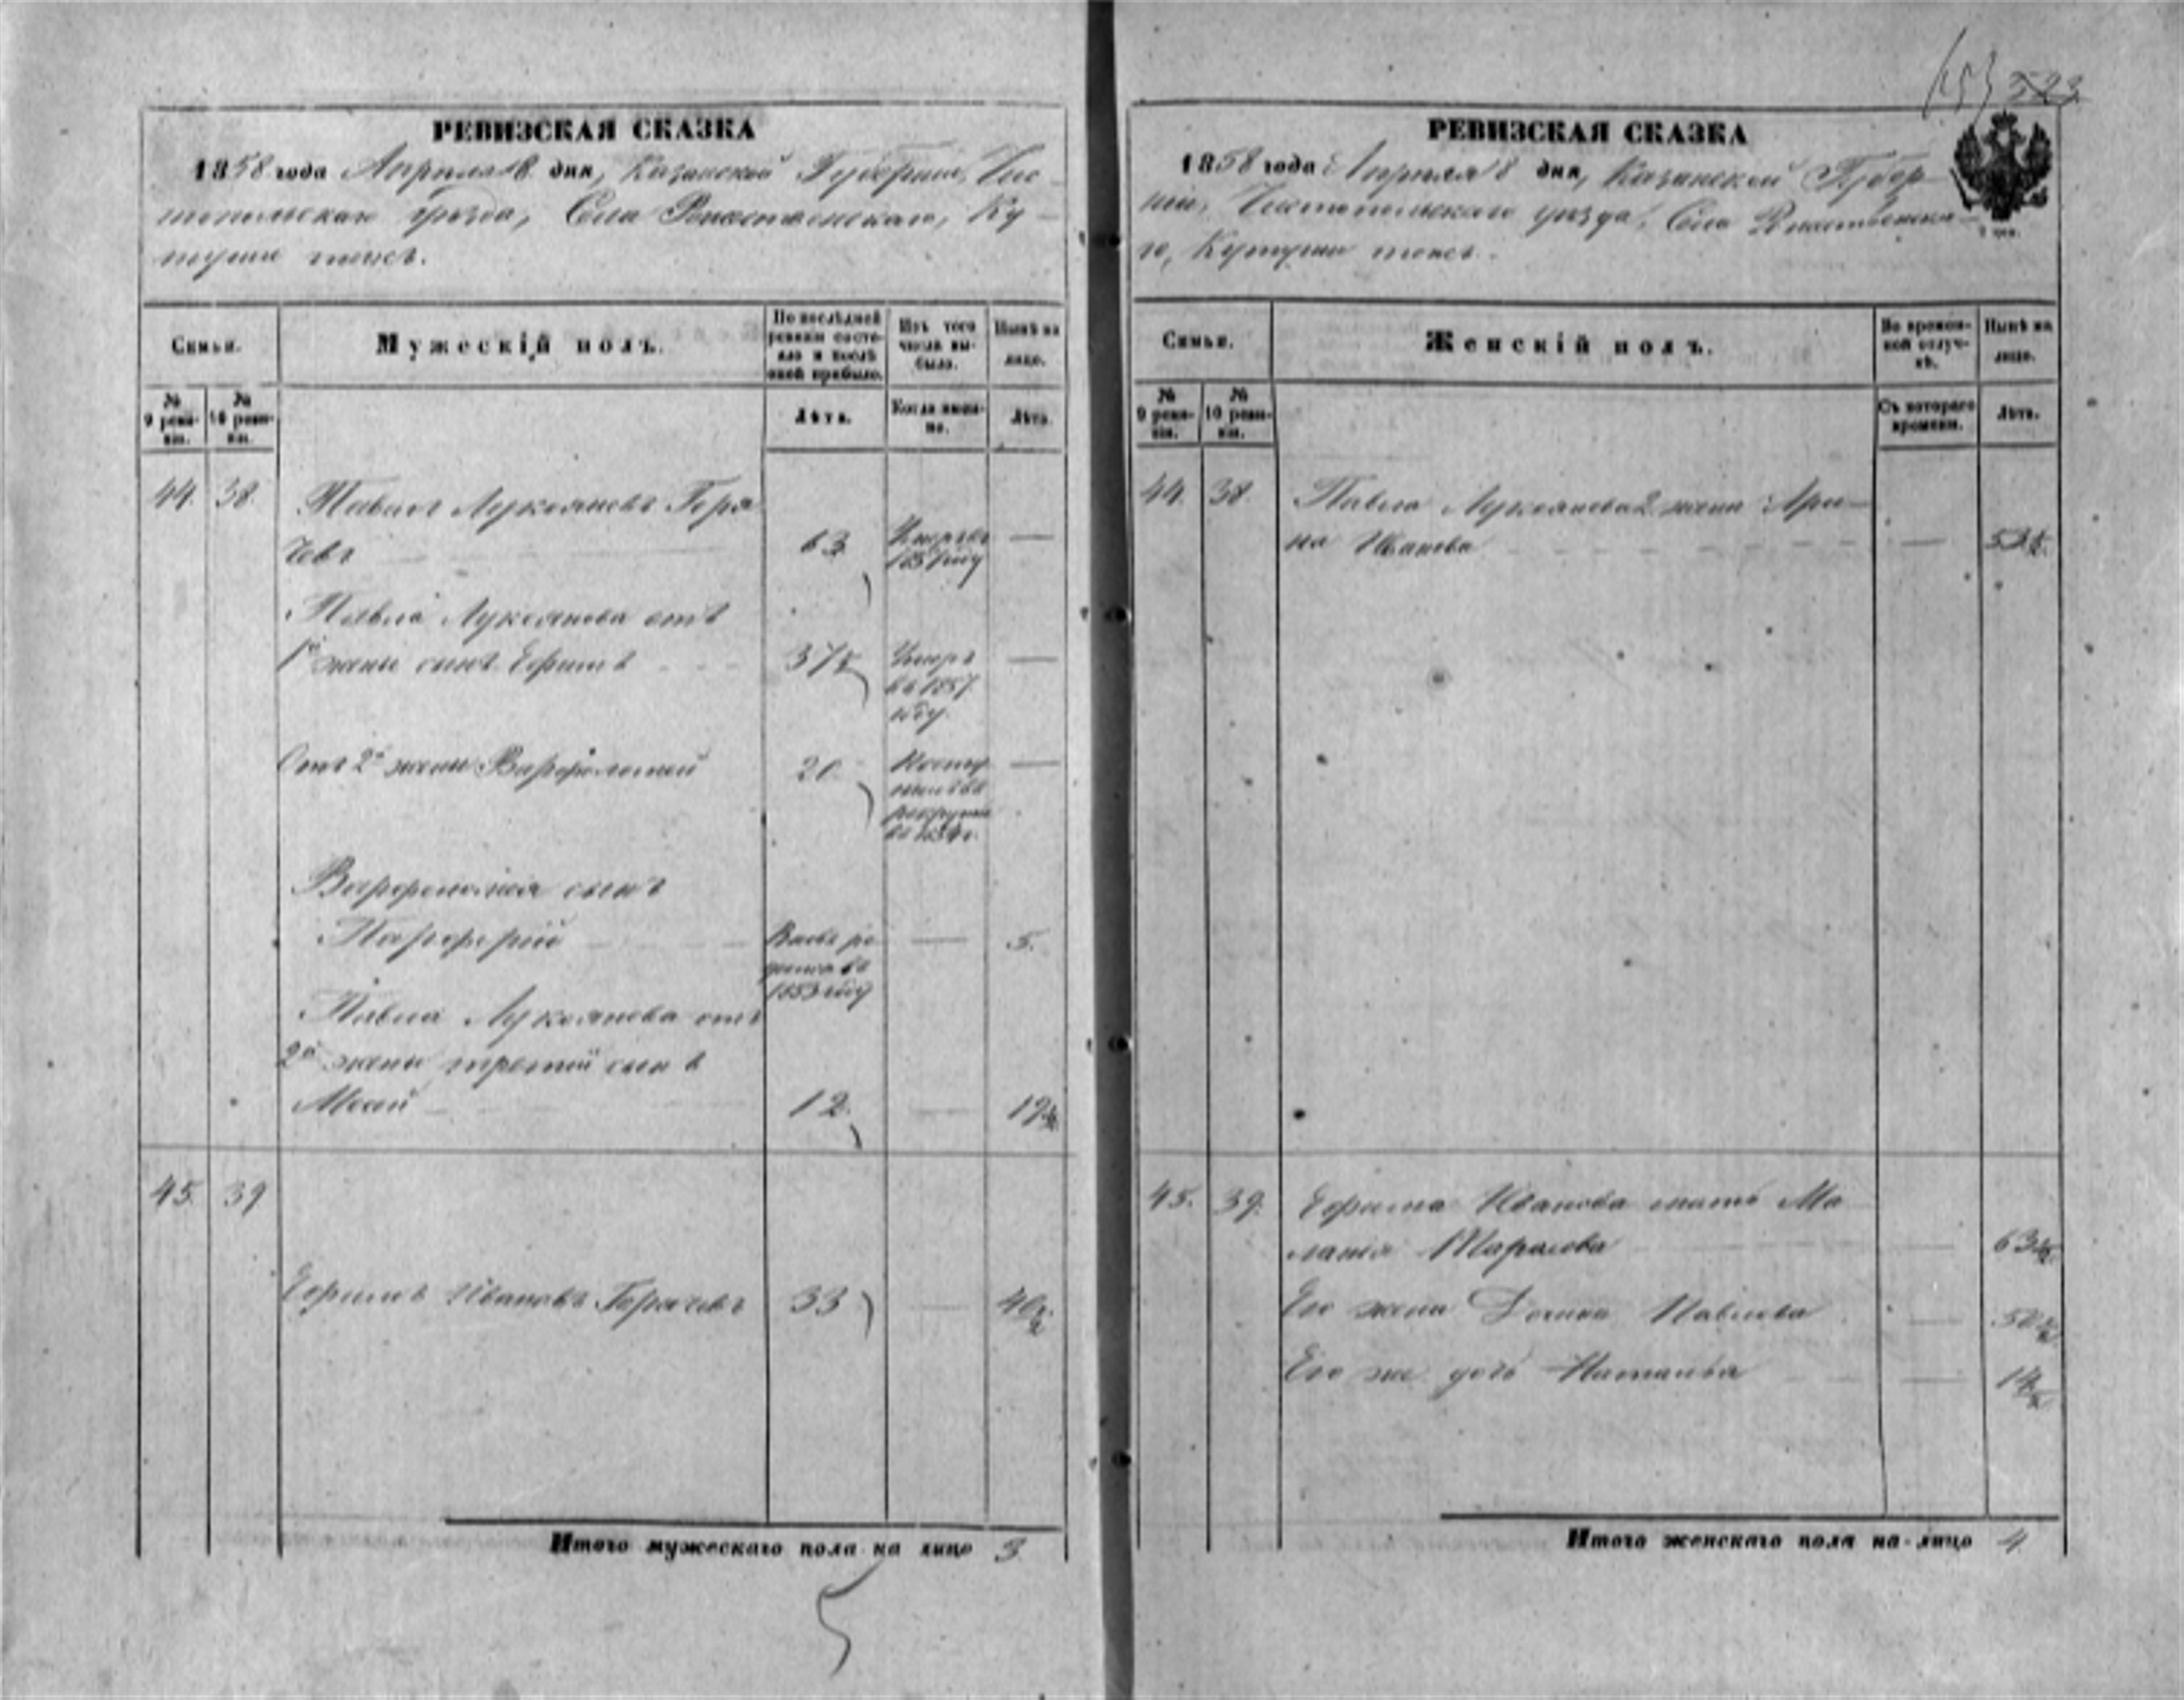 153 523
РЕВИЗСКАЯ СКАЗКА
1858 года Апреля 8 дня, Казанской Губернии, Чис-
топольскаго уѣзда, Села Рождественскаго, Ку-
туши тожъ.
Семьи.
Мужескій полъ.
По послѣдней ревизіи состояло и послѣ оной прибыло.
Изъ того числа выбыло.
Нынѣ на лицо.
№ 9 ревизіи.
№ 10 ревизіи.
Лѣта.
Когда именно.
Лѣта.
44. 38. Павелъ Лукояновъ Горя
чевъ 63 Умеръ въ 1851 году —
Павла Лукоянова отъ
1й жены сынъ Ефимъ 37 Умеръ въ 1857 году. —
Отъ 2й жены Варфоломей 20 рекруты въ 1854 г. —
Варфоломея сынъ
Порфирій Вновь рожденъ въ 1853 году — 5.
Павла Лукоянова отъ
2й жены третій сынъ
Мосей 12. — 19
45. 39
Ефимъ Ивановъ Горячевъ 33 — 40
Итого мужескаго пола на лицо 3
РЕВИЗСКАЯ СКАЗКА
1858 года Апреля 8 дня, Казанской Губер-
ніи, Чистопольскаго уѣзда, Села Рождественска-
го, Кутуши тожъ.
Семьи.
Женскій полъ.
Во временной отлучкѣ.
Нынѣ на лицо.
№ 9 ревизіи.
№ 10 ревизіи.
Съ котораго времени.
Лѣта.
44. 38. Павла Лукоянова 2 жена Ари-
на Иванова —
45. 39. Ефима Иванова мать Ма
ланья Тарасова — 63
Его жена Павлова — 50
Его же дочь Наталья — 14
Итого женскаго пола на-лицо 4